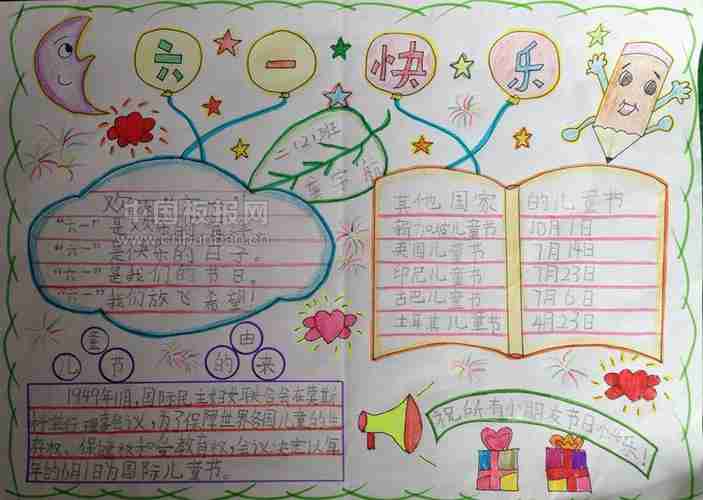 六一快乐
二(2)班
中国板报网
www.cnbanbao.cn
"六一"是欢乐的
"六一"是快乐的日子。
"六一"是我们的节日。
"六一"我们放飞希望!
其他国家的儿童节
新加坡儿童节 10月1日
英国儿童节 7月14日
印尼儿童节 7月23日
古巴儿童节 7月6日
土耳其儿童节 4月23日
儿童节的由来
1949年11月,国际民主妇女联合会在莫斯
科举行理事会议,为了保障世界各国儿童的生
存权、保健权和受教育权,会议决定以每
年的6月1日为国际儿童节。
祝所有小朋友节日快乐!